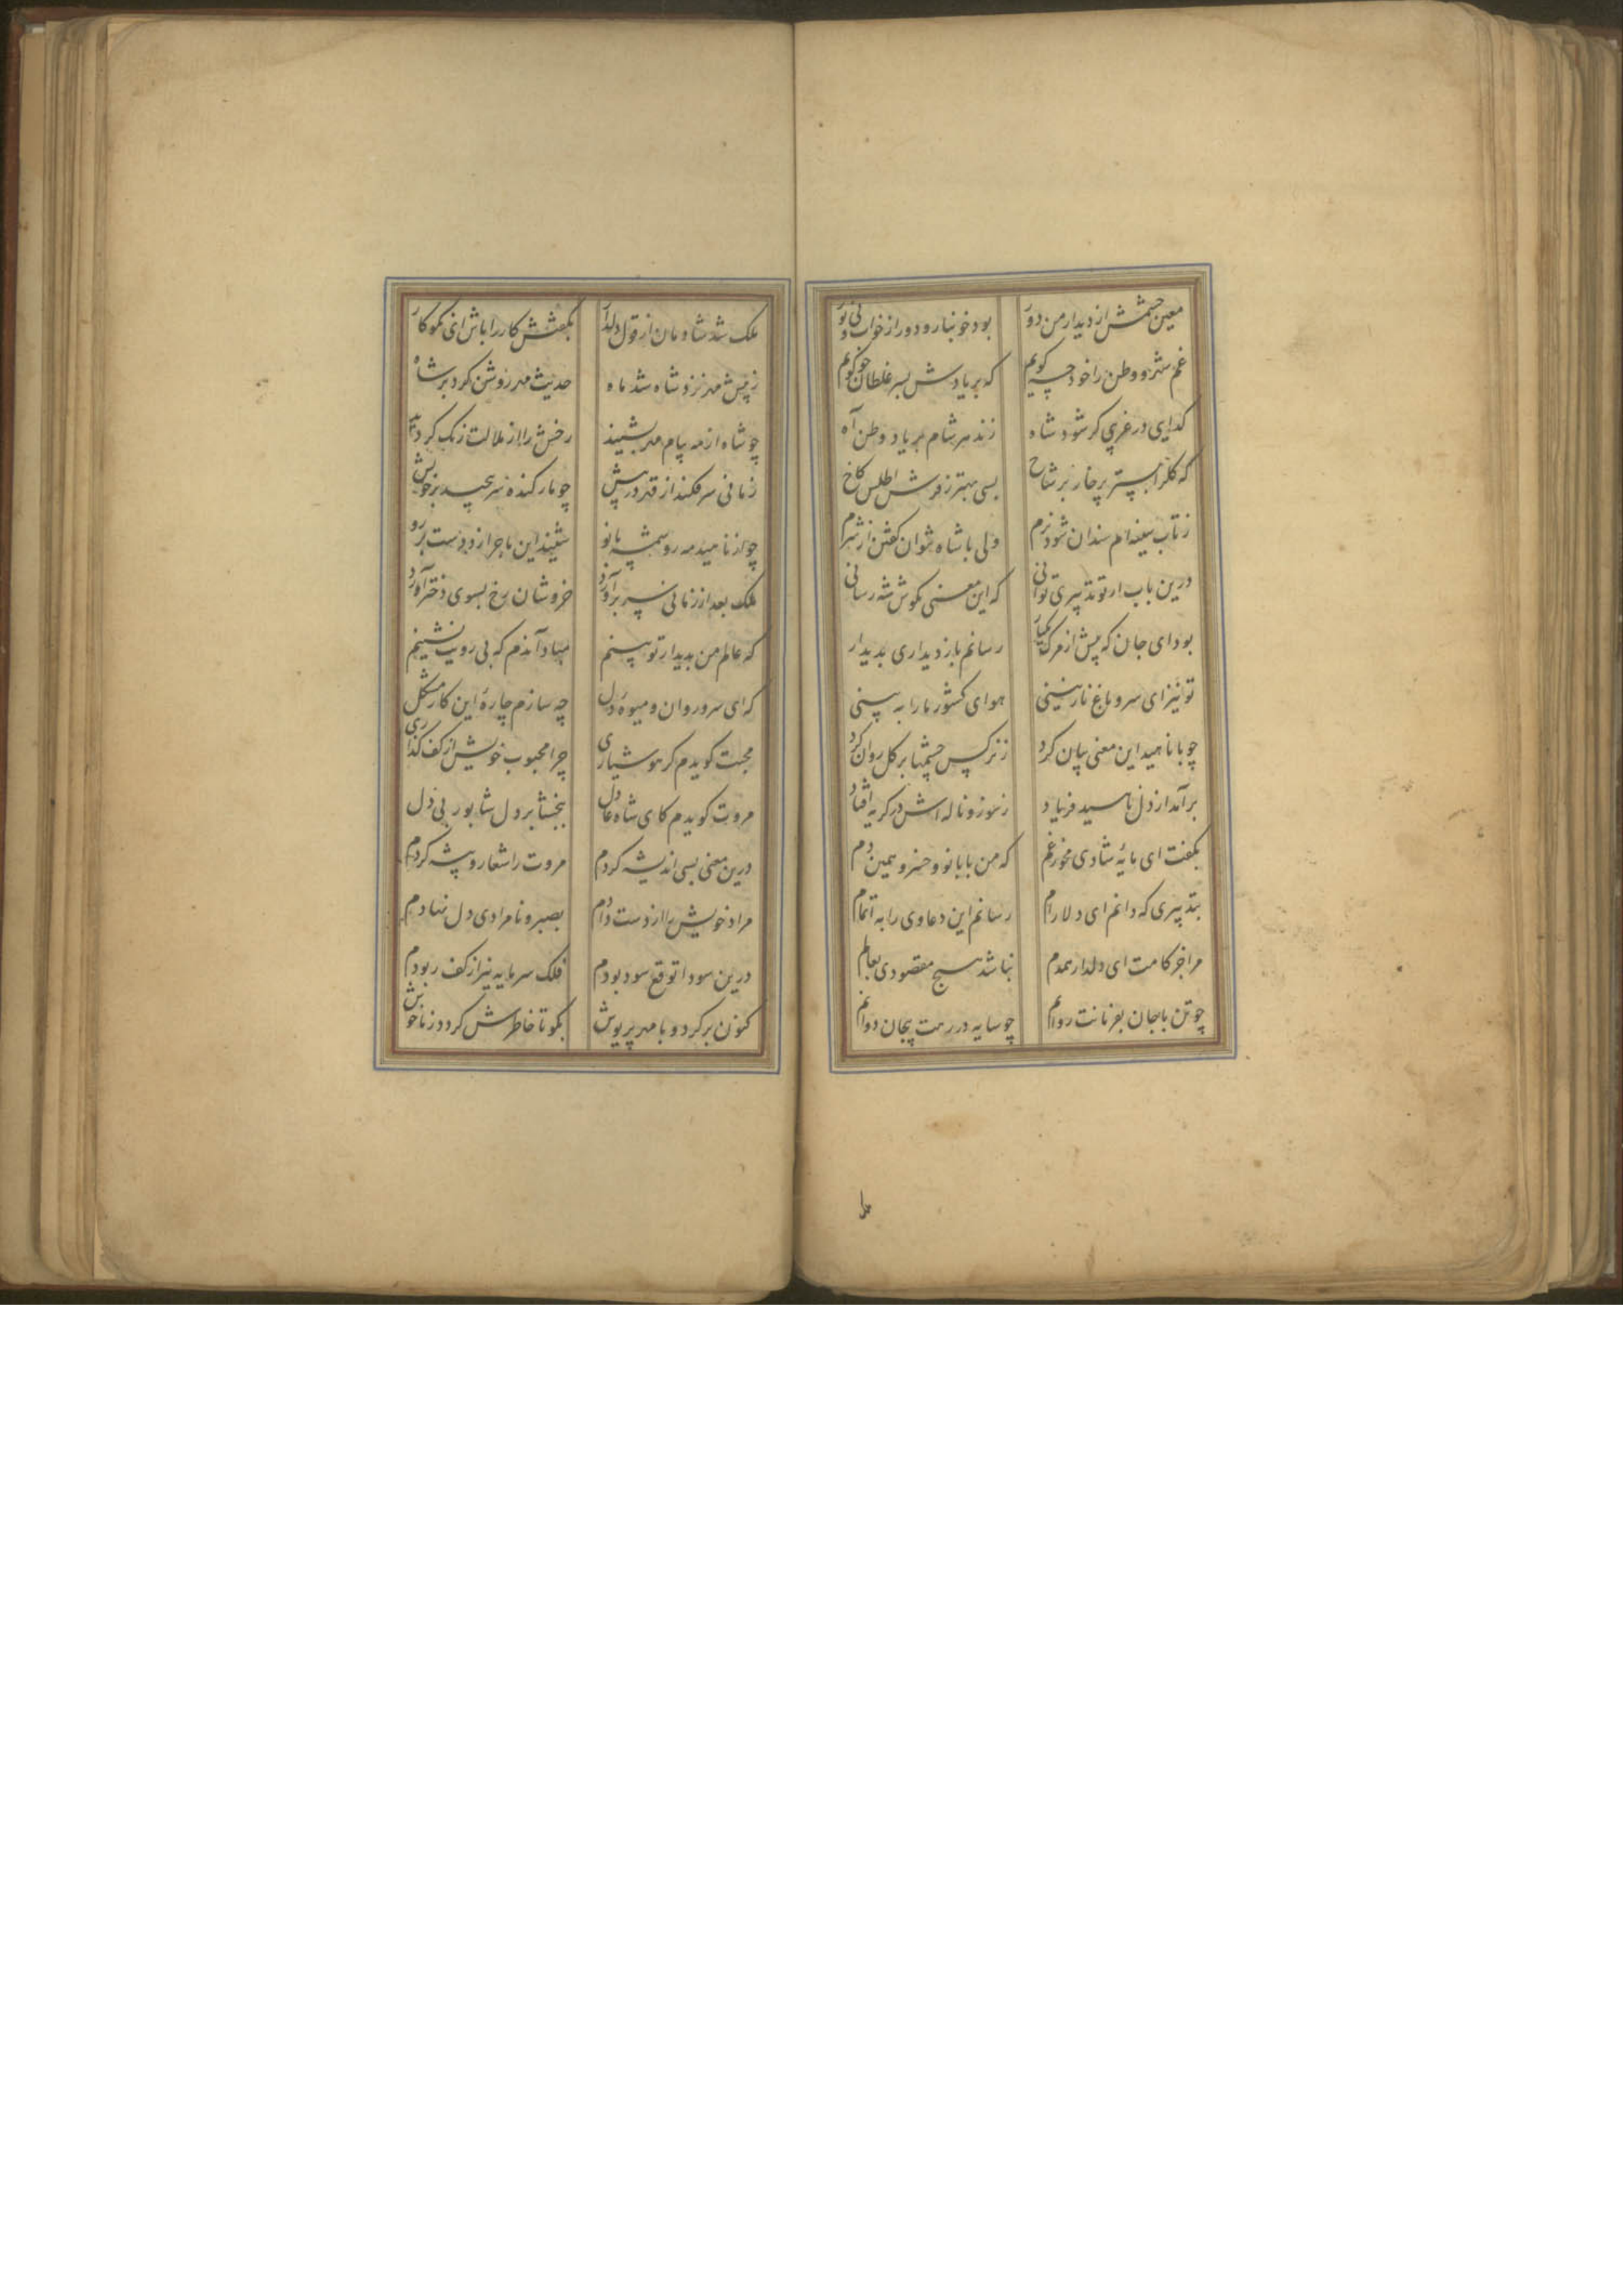 معین چشمش از دیدار من دور بود خونبار و دور از خواب و بی نور
غم شهر و وطن را خود چه گویم که بر یادش بسر غلطان چو گویم
گدایی در غریبی گر شود شاه زند هر شام بر یاد وطن آه
که گلرا بستر پر خار بر شاخ بسی بهتر ز فرش اطلس کاخ
ز تاب سینه ام سندان شود نرم ولی با شاه نتوان گفتن از شرم
درین باب ار تو تدبیری توانی که این معنی بگوش شه رسانی
بود ای جان که پیش از مرگ یکبار رسانم باز دیداری بدیدار
تو نیز ای سرو باغ نازنینی هوای کشور ما را به بینی
چو با ناهید این معنی بیان کرد ز نرگس چشمها بر گل روان کرد
برآمد از دل ناهید فریاد ز سوز و ناله اش در گریه افتاد
بگفت ای مایهٔ شادی مخور غم که من با بانو و خسرو همین دم
بتدبیری که دانم ای دلارام رسانم این دعاوی را به اتمام
مرا جز کامت ای دلدار همدم نباشد هیچ مقصودی بعالم
چو تن با جان بفرمانت روانم چو سایه در رهت بیجان دوانم
ملک
ملک شد شادمان از قول دلدار بگفتش کار را باش ای نکوکار
ز پیش مهر نزد شاه شد ماه حدیث مهر روشن کرد بر شاه
چو شاه از مه پیام مهر بشنید رخش را از ملالت رنگ گردید
زمانی سر فکند از قهر در پیش چو مار کنده سر پیچید بر خویش
چو از ناهید مه رو سمیه بانو شنید این ماجرا زد دست بر رو
ملک بعد از زمانی سر برآورد خروشان رخ بسوی دختر آورد
که عالم من بدیدار تو بینم مباد آندم که بی رویت نشینم
که ای سرو روان و میوهٔ دل چه سازم چارهٔ این کار مشکل
محبت گویدم گر هوشیاری چرا محبوب خویش از کف گذاری
مروت گویدم کای شاه عادل ببخشا بر دل شاپور بی دل
درین معنی بسی اندیشه کردم مروت را شعار و پیشه کردم
مراد خویش را از دست دادم بصبر و نامرادی دل نهادم
درین سودا توقع سود بودم فلک سرمایه نیز از کف ربودم
کنون برگرد و با مهر پریوش بگو تا خاطرش گردد ز ما خوش